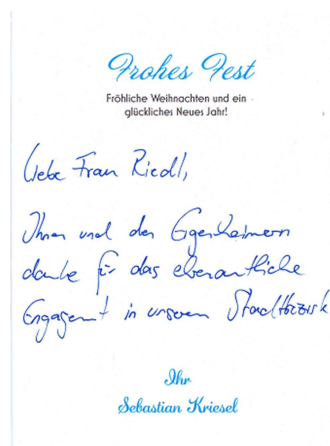 Frohes Fest
Fröhliche Weihnachten und ein
glückliches Neues Jahr!
Liebe Frau Riedl,
Ihnen und den Eggenheimern
danke für das ehrenamtliche
Engagement in unserem Stadtbezirk
Ihr
Sebastian Kriesel